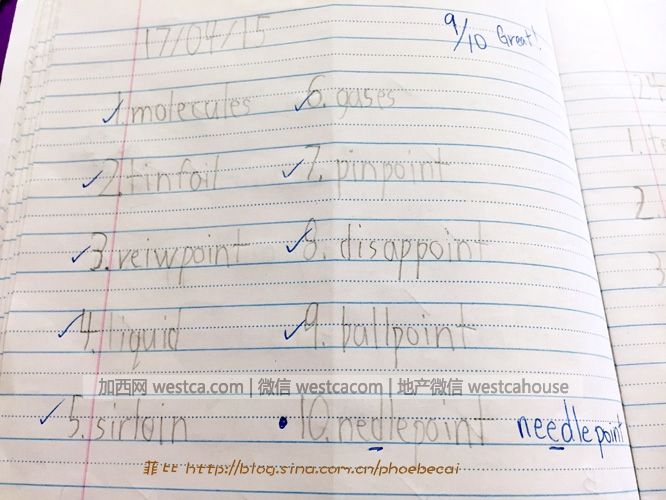 17/04/15
9/10 Great!
✓1. molecules
✓2. tinfoil
✓3. veiwpoint
✓4. liquid
✓5. sirloin
✓6. gases
✓7. pinpoint
✓8. disappoint
✓9. ballpoint
•10. nedlepoint needlepoint
24
1. t
2
3
加西网 westca.com | 微信 westcacom | 地产微信 westcahouse
菲比 http://blog.sina.com.cn/phoebecai